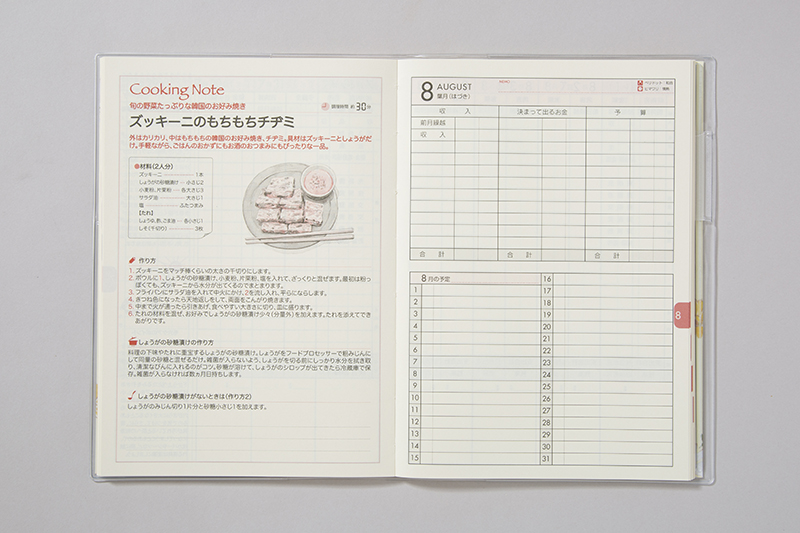 Cooking Note
旬の野菜たっぷりな韓国のお好み焼き
調理時間 約30分
ズッキーニのもちもちチヂミ
外はカリカリ、中はもちもちの韓国のお好み焼き、チヂミ。具材はズッキーニとしょうがだ
け。手軽ながら、ごはんのおかずにもお酒のおつまみにもぴったりな一品。
●材料(2人分)
ズッキーニ……1本
しょうがの砂糖漬け…小さじ2
小麦粉、片栗粉…各大さじ3
サラダ油……大さじ1
塩……ふたつまみ
【たれ】
しょうゆ、酢、ごま油…各小さじ1
しそ(千切り)……3枚
作り方
1. ズッキーニをマッチ棒くらいの太さの千切りにします。
2. ボウルに1、しょうがの砂糖漬け、小麦粉、片栗粉、塩を入れて、ざっくりと混ぜます。最初は粉っ
ぽくても、ズッキーニから水分が出てくるのでまとまります。
3. フライパンにサラダ油を入れて中火にかけ、2を流し入れ、平らにならします。
4. きつね色になったら天地返しをして、両面をこんがり焼きます。
5. 中まで火が通ったら引きあげ、食べやすい大きさに切り、皿に盛ります。
6. たれの材料を混ぜ、お好みでしょうがの砂糖漬け少々(分量外)を加えます。たれを添えてでき
あがりです。
しょうがの砂糖漬けの作り方
料理の下味やたれに重宝するしょうがの砂糖漬け。しょうがをフードプロセッサーで粗みじんに
して同量の砂糖と混ぜるだけ。雑菌が入らないよう、しょうがを切る前にしっかり水分を拭き取
り、清潔なびんに入れるのがコツ。砂糖が溶けて、しょうがのシロップが出てきたら冷蔵庫で保
存。雑菌が入らなければ数ヵ月日持ちします。
しょうがの砂糖漬けがないときは(作り方2)
しょうがのみじん切り1片分と砂糖小さじ1を加えます。
8 AUGUST
葉月(はづき)
MEMO
収 入
決まって出るお金
予 算
前月繰越
収 入
合 計
合 計
合 計
8月の予定
16
1
17
2
18
3
19
4
20
5
21
6
22
7
23
8
24
9
25
10
26
11
27
12
28
13
29
14
30
15
31
8